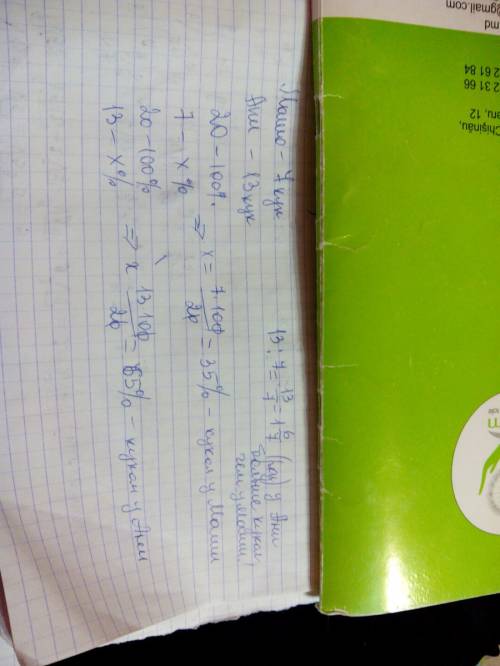 Машо - 7 кук
Ани - 13 кук
20 - 100%
7 - x%
⇒ x = 7·100/20 = 35% - кукол у Маши
20 - 100%
13 - x%
⇒ x 13 100/20 = 65% - кукол у Ани
13 : 7 = 13/7 = 1 6/7 (раз) у Ани
больше кукол
чем у Маши!
Chișinău,
aru, 12
2 31 66
2 61 84
md
@gmail.com
m